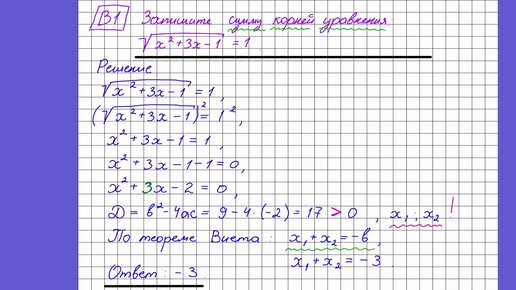 B1 Запишите сумму корней уравнения:
√(x²+3x-1) = 1
Решение
√(x²+3x-1) = 1,
(√(x²+3x-1))² = 1²,
x²+3x-1 = 1,
x²+3x-1-1=0,
x²+3x-2 = 0,
D = b²-4ac = 9-4·(-2) = 17 > 0, x₁; x₂ !
По теореме Виета: x₁+x₂=-b,
x₁+x₂ = -3
Ответ: -3